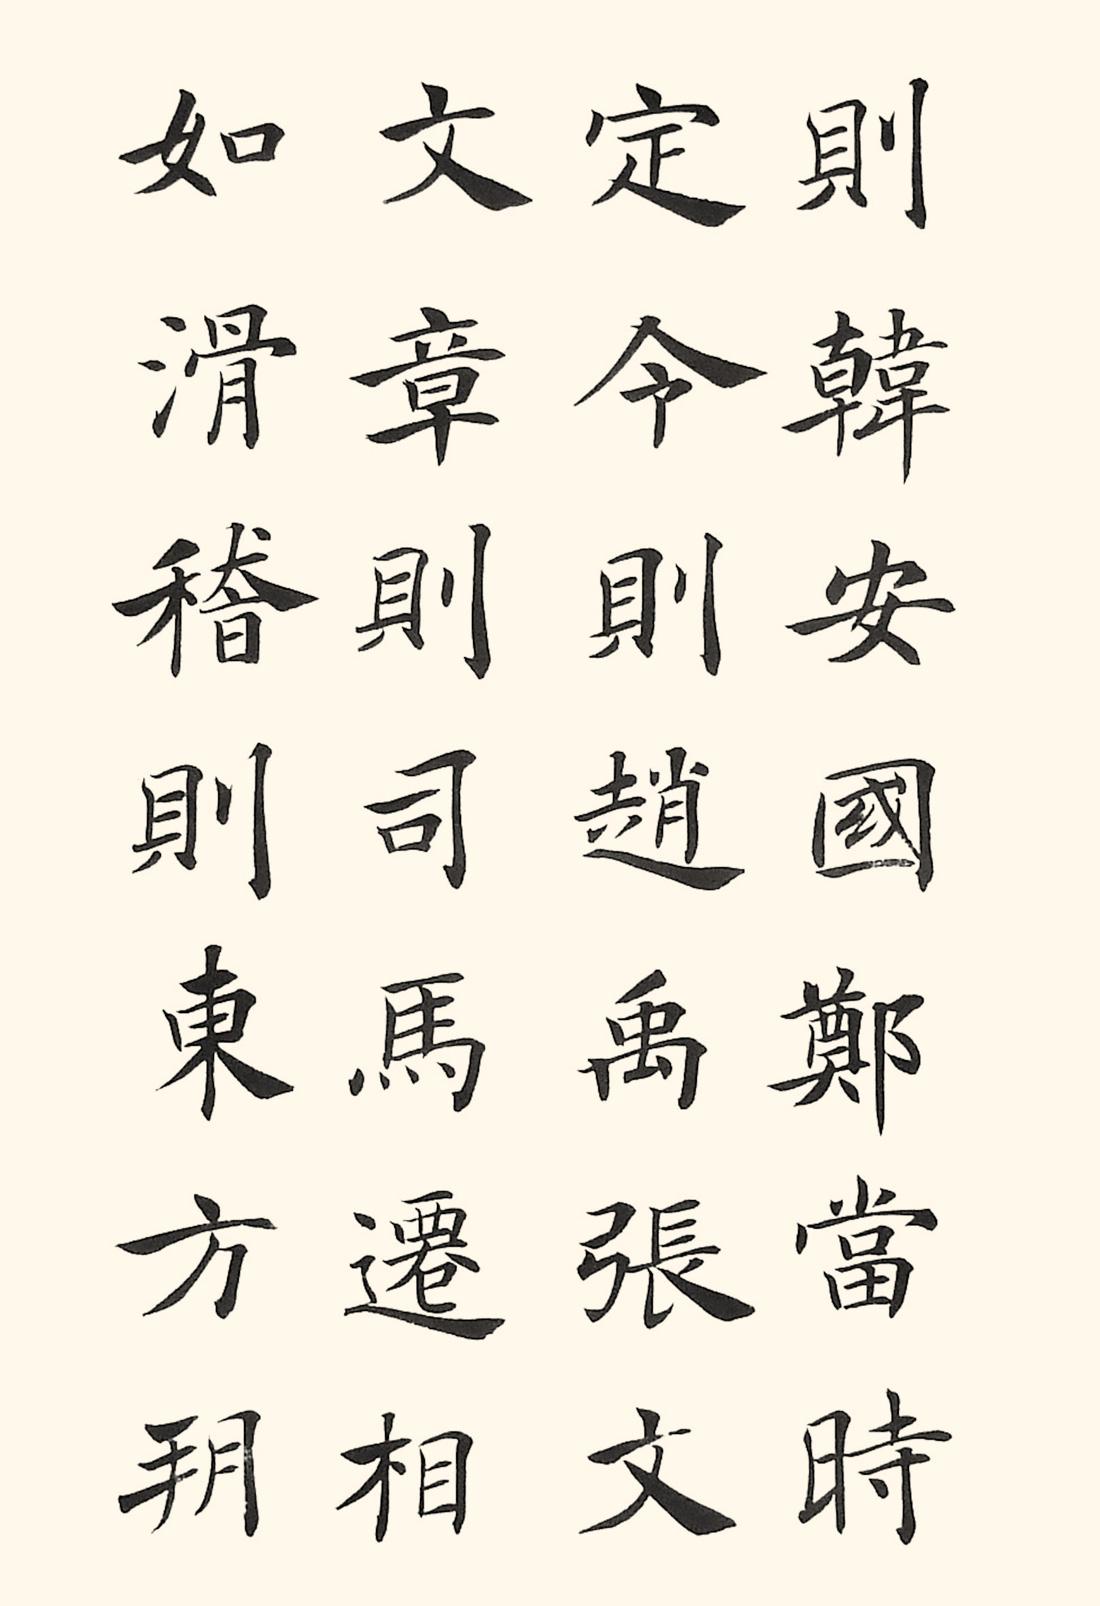 則韓安國鄭當時
定令則趙禹張文
文章則司馬遷相
如滑稽則東方朔